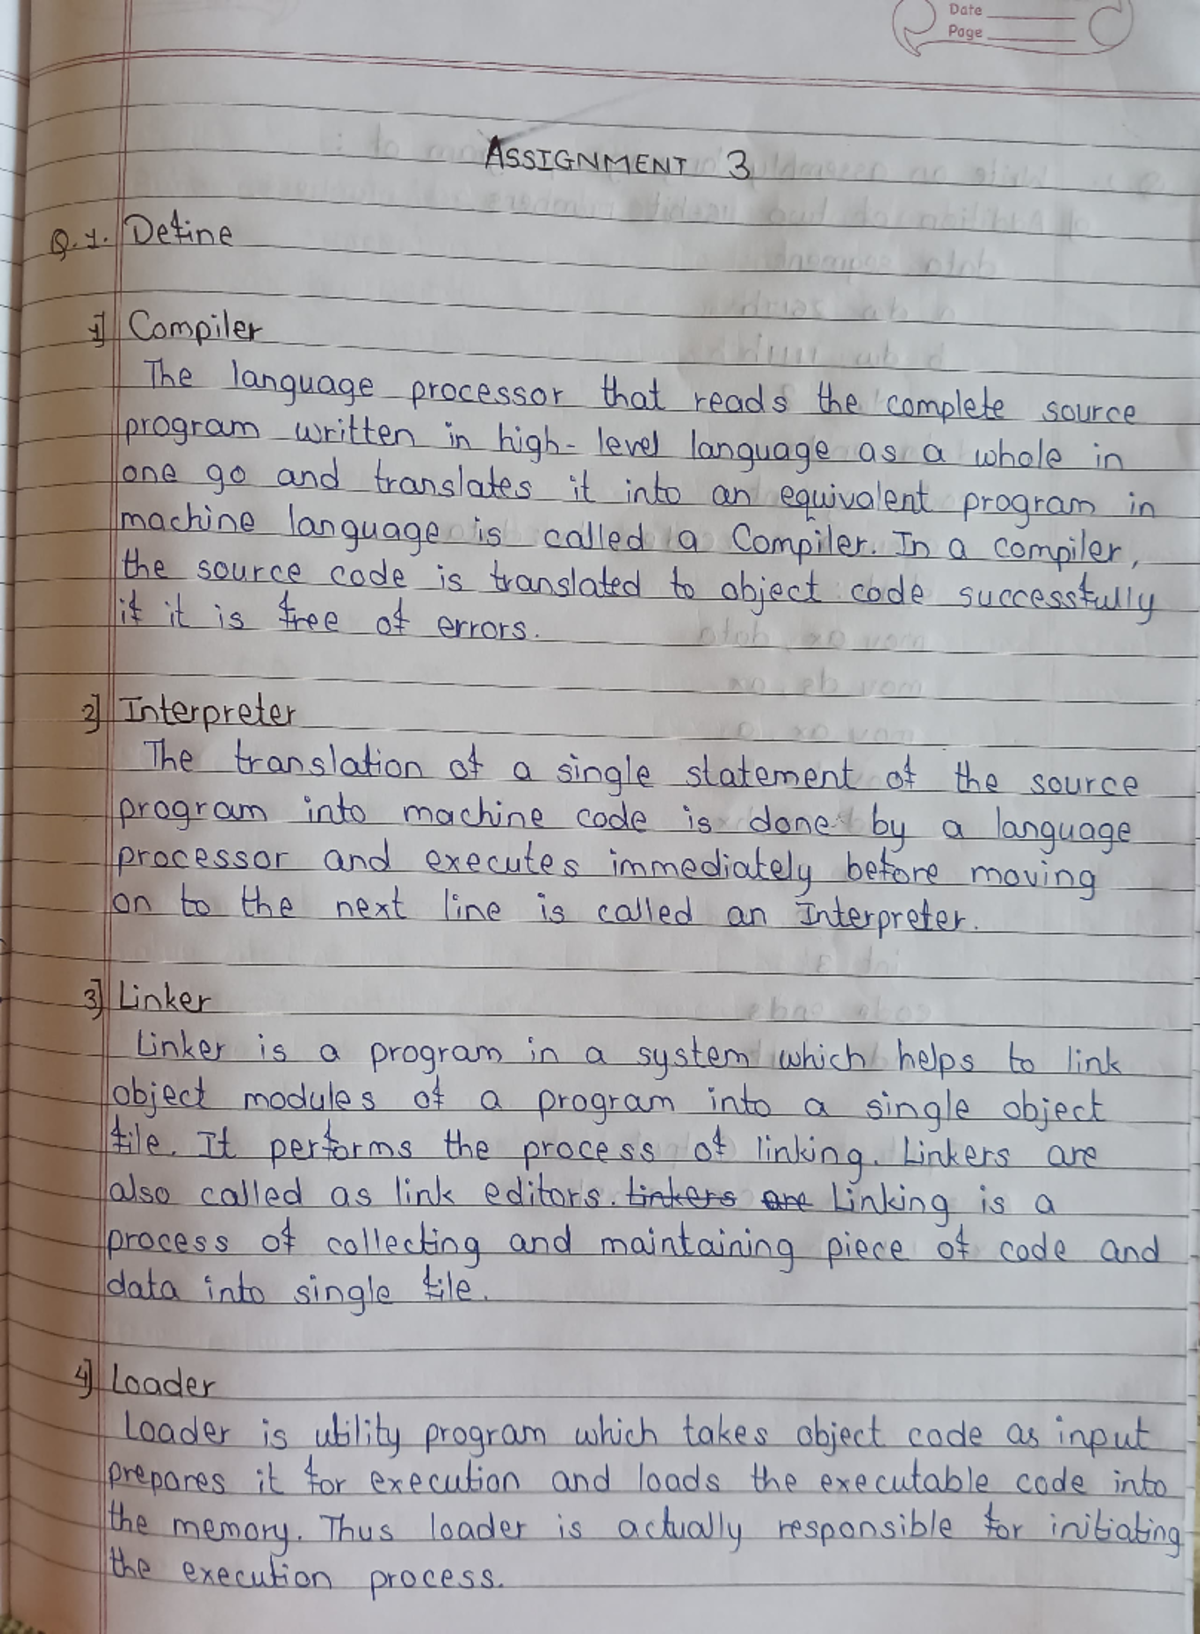 Date
Page
ASSIGNMENT 3
Q.1. Define
1] Compiler
The language processor that reads the complete source
program written in high-level language as a whole in
one go and translates it into an equivalent program in
machine language is called a Compiler. In a compiler,
the source code is translated to object code successfully
if it is free of errors.
2] Interpreter
The translation of a single statement of the source
program into machine code is done by a language
processor and executes immediately before moving
on to the next line is called an Interpreter.
3] Linker
Linker is a program in a system which helps to link
object modules of a program into a single object
file. It performs the process of linking. Linkers are
also called as link editors. Linkers are Linking is a
process of collecting and maintaining piece of code and
data into single file.
4] Loader
Loader is utility program which takes object code as input
prepares it for execution and loads the executable code into
the memory. Thus loader is actually responsible for initiating
the execution process.